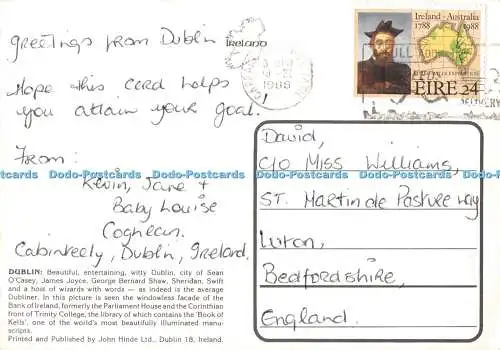 greetings from Dublin
Hope this card helps
you attain your goal.
From:
Kevin, Jane +
Baby Louise
Coghlan.
Cabinteely, Dublin, Ireland.
DUBLIN: Beautiful, entertaining, witty Dublin, city of Sean
O'Casey, James Joyce, George Bernard Shaw, Sheridan, Swift
and a host of wizards with words — as indeed is the average
Dubliner. In this picture is seen the windowless facade of the
Bank of Ireland, formerly the Parliament House and the Corinthian
front of Trinity College, the library of which contains the 'Book of
Kells', one of the world's most beautifully illuminated manu-
scripts.
Printed and Published by John Hinde Ltd., Dublin 18, Ireland.
Ireland
1988
Ireland - Australia
1788 1988
EIRE 24
David,
C/O Miss Williams,
ST. Martin de Pasture way
Luton,
Bedfordshire,
England.
Dodo-Postcards Dodo-Postcards Dodo-Postcards Dodo-Postcards